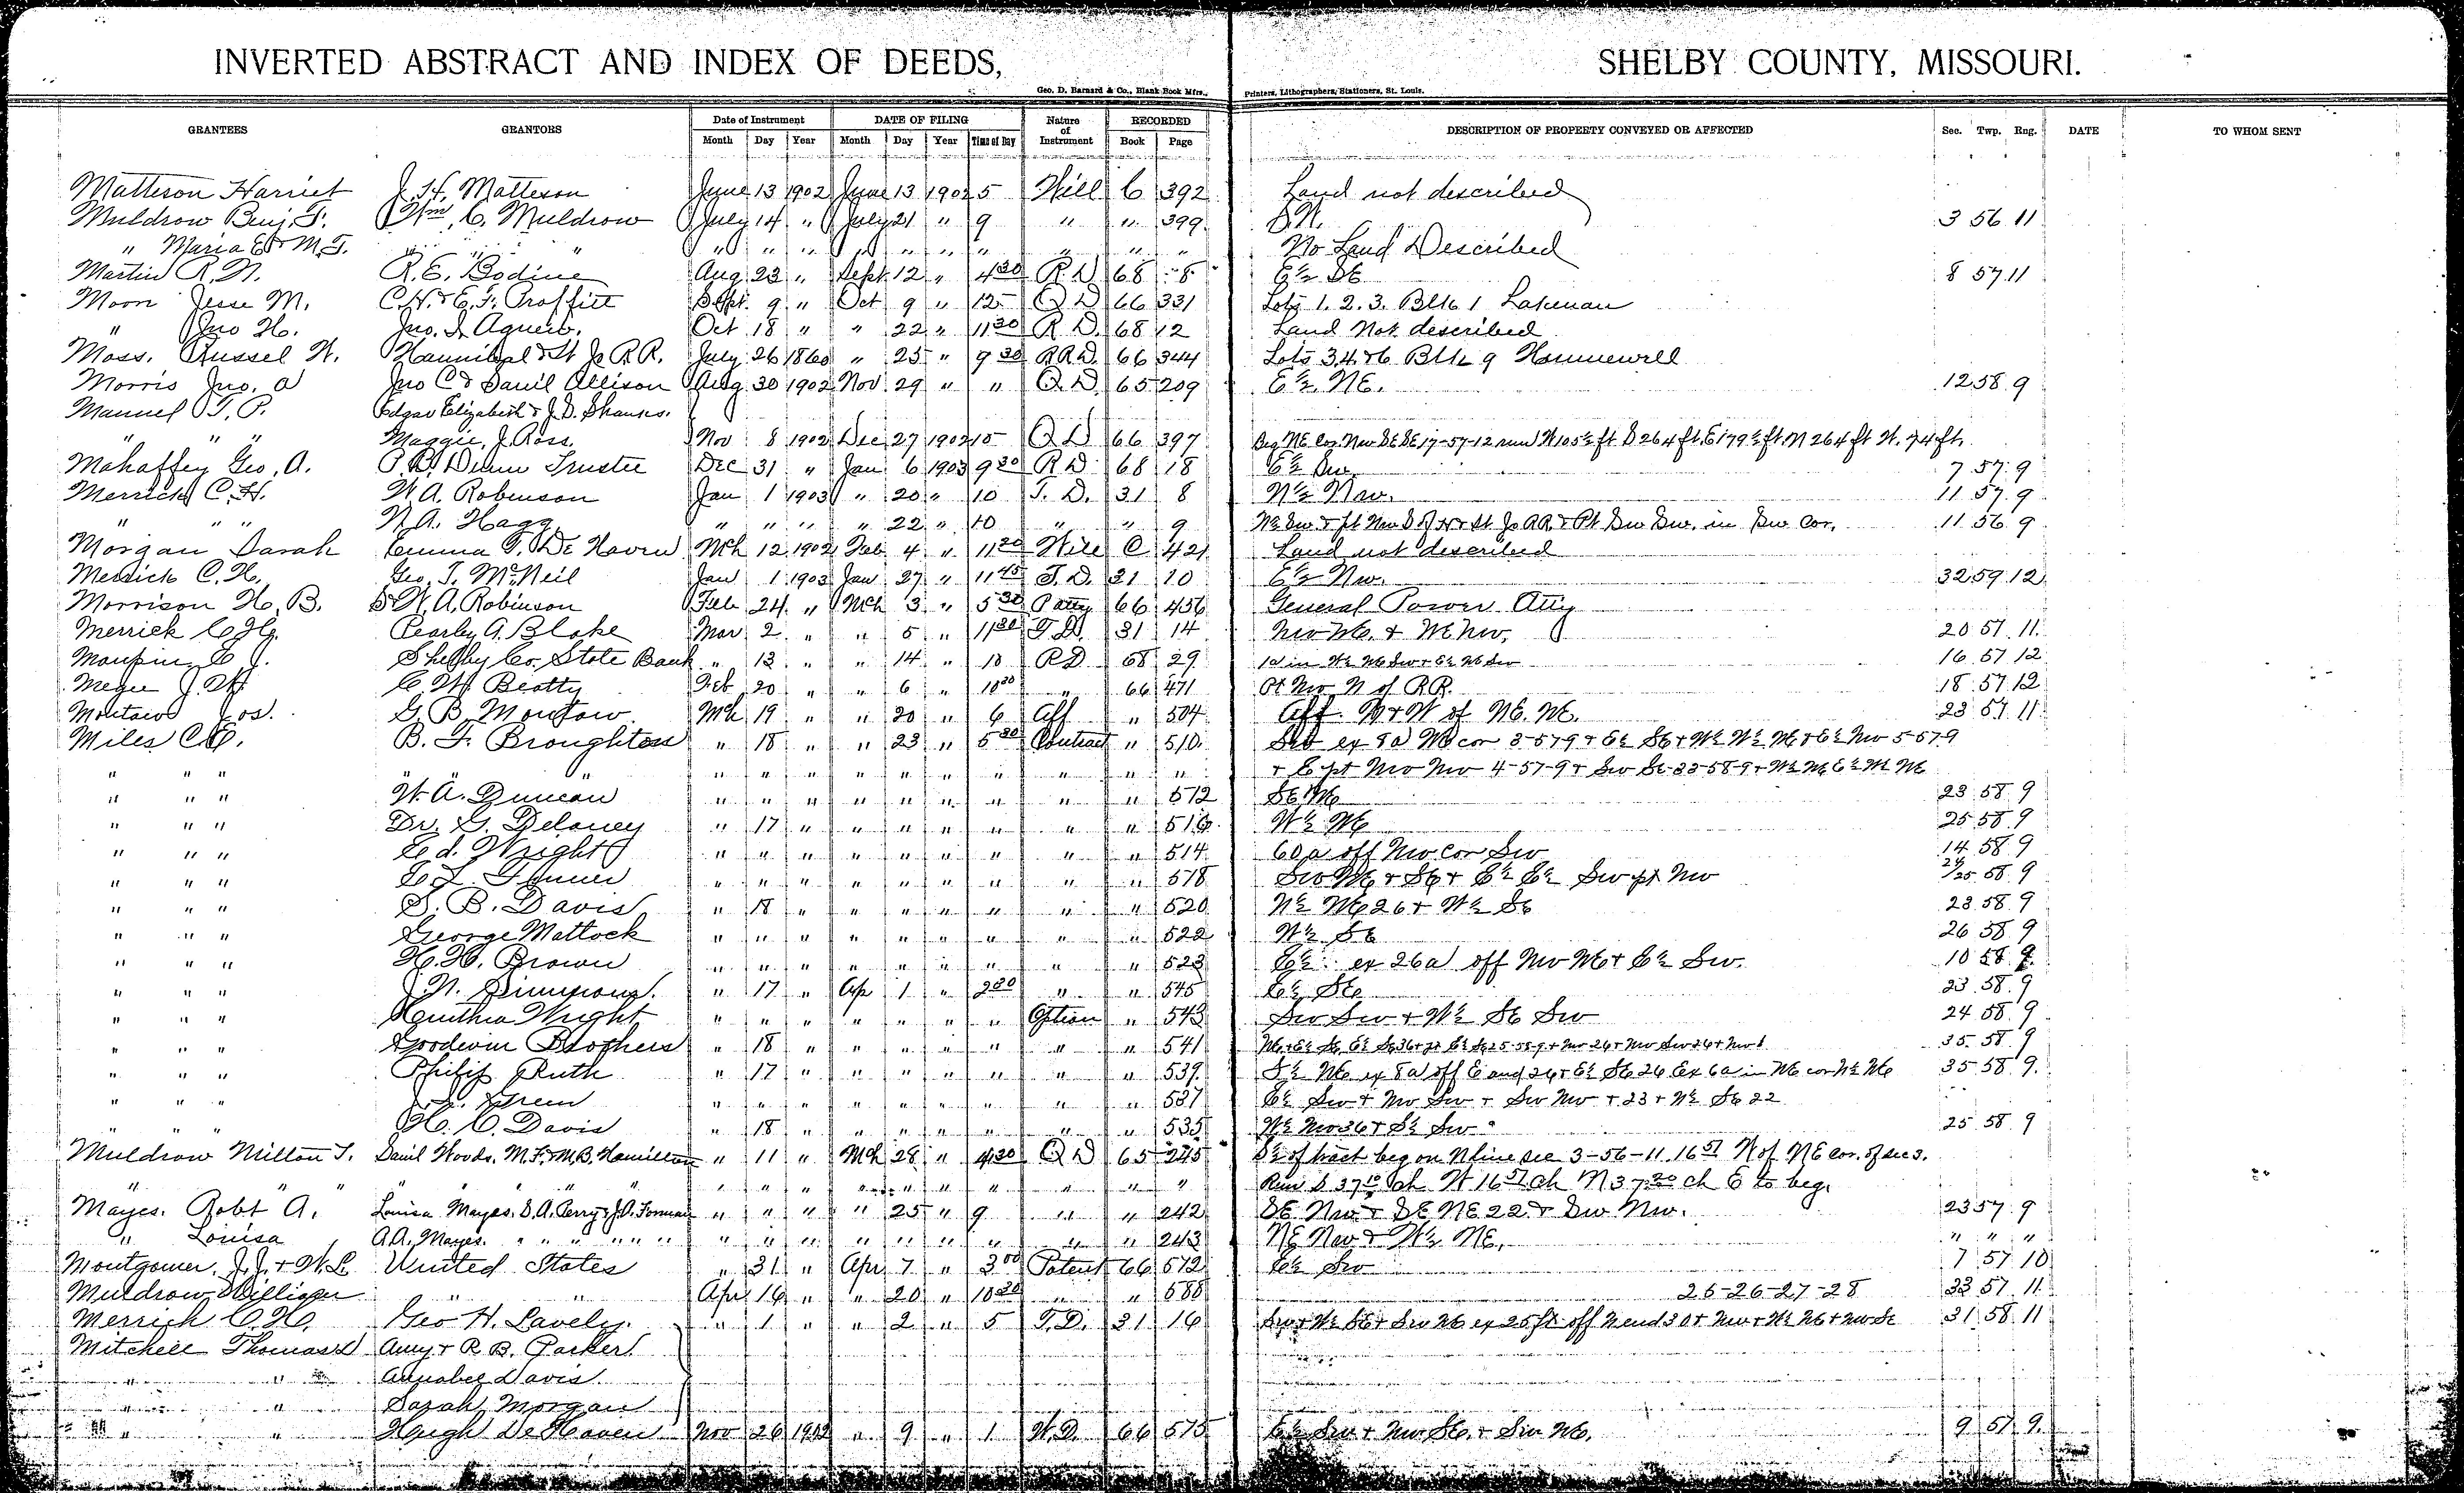 INVERTED ABSTRACT AND INDEX OF DEEDS, SHELBY COUNTY, MISSOURI.
Geo. D. Barnard & Co., Blank Book Mfrs., Printers, Lithographers, Stationers, St. Louis.
GRANTEES GRANTORS Date of Instrument DATE OF FILING Nature of Instrument RECORDED DESCRIPTION OF PROPERTY CONVEYED OR AFFECTED Sec. Twp. Rng. DATE TO WHOM SENT
Month Day Year Month Day Year Time of Day Book Page
Matteson Harriet J. H. Matteson June 13 1902 June 13 1902 5 Will C 392 Land not described
Muldrow Benj. F. Wm. C. Muldrow July 14 " July 21 " 9 " " 399 3 56 11
" Maria E & M. F. " " " " " " " " " " " " No Land Described
Martin R. N. R. E. Bodine Aug 23 " Sept 12 " 4 30 R D 68 8 E½ SE 8 57 11
Moon Jesse M. C. H. & E. F. Proffitt Sept. 9 " Oct 9 " 12 Q D 66 331 Lots 1. 2. 3. Blk 1 Lakenan
" Jno H. Jno. I. Oct 18 " " 22 " 11 30 R D. 68 12 Land Not described
Moss. Russel W. Hannibal & St Jo R. R. July 26 1860 " 25 " 9 30 RRD. 66 344 Lots 3.4. & 6 Blk 9 Hunnewell
Morris Jno. A Jno C & Daniel Allison Aug 30 1902 Nov 29 " " Q D. 65 209 E½ NE. 12 58 9
Manuel T. P. Edgar Elizabeth & J. D. Shanks.
" " " Maggie J. Ross. Nov 8 1902 Dec 27 1902 10 Q D 66 397 Beg NE Cor. Nw SE SE 17-57-12 run W 105½ ft. S 264 ft. E 179½ ft. N 264 ft W. 74 ft.
Mahaffey Geo. A. P. B. Dunn Trustee Dec 31 " Jan 6 1903 9 30 R D 68 18 E½ Sw 7 57 9
Merrick C. H. W. A. Robinson Jan 1 1903 " 20 " 10 T. D. 31 8 N½ Nw. 11 57 9
" " " N. A. Hagg " " " " 22 " 10 " " 9 W½ Sw. & pt Nw S of H & St Jo R.R. & Pt Sw Sw. in Sw Cor. 11 56 9
Morgan Sarah Emma F. De Haven Mch 12 1902 Feb 4 " 11 30 Will C 421 Land not described
Merrick C. H. Geo. T. McNeil Jan 1 1903 Jan 27 " 11 45 T. D. 31 10 E½ Nw. 32 59 12
Morrison H. B. S W. A. Robinson Feb 24 " Mch 3 " 5 30 P atty 66 456 General Power Atty
Merrick C. H. Pearly A. Blake Mar 2 " " 5 " 11 30 T. D. 31 14 Nw NE. & NE Nw. 20 57 11
Maupin E J. Shelby Co. State Bank " 13 " " 14 " 10 R D 68 29 1a in W½ NE Sw & E½ NE Sw 16 57 12
Megee J. W. C. W. Beatty Feb 20 " " 6 " 10 30 " 66 471 Pt Nw N of R.R. 18 57 12
Montaw Jos. G. B. Montaw Mch 19 " " 20 " 6 Aff " 504 Aff. N & W of NE. NE. 23 57 11
Miles C. E. B. F. Broughton " 18 " " 23 " 5 30 Contract " 510 Sw ex 8a NE cor 3-57 9 & E½ SE & W½ W½ NE & E½ Nw 5-57 9
" " " " " " " " " " " " " " " + E pt Nw Nw 4-57-9 & Sw SE 33-58-9 & W½ NE E½ NE NE
" " " W. A. Duncan " " " " " " " " " 512 SE NE 23 58 9
" " " Dr. G. Delaney " 17 " " " " " " " 516 W½ NE 25 58 9
" " " Ed. Wright " " " " " " " " " 514 60 a off Nw Cor Sw 14 58 9
" " " E. L. " " " " " " " " " 518 Sw NE & SE & E½ E½ Sw pt Nw 24/25 58 9
" " " S. B. Davis " 18 " " " " " " " 520 W½ NE 26 & W½ SE 23 58 9
" " " George Mattock " " " " " " " " " 522 W½ SE 26 58 9
" " " H. H. Brown " " " " " " " " " 523 E½ ex 26a off Nw NE & E½ Sw. 10 58 9
" " " J. N. Simmons. " 17 " Ap 1 " 2 30 " " 545 E½ SE 23 58 9
" " " Wright " " " " " " " Option " 543 Sw Sw & W½ SE Sw 24 58 9
" " " Goodwin Brothers " 18 " " " " " " " 541 35 58 9
" " " Philip Ruth " 17 " " " " " " " 539 S½ NE ex 8a off E and 26 & E½ SE 26 Ex 6a in NE cor W½ NE 35 58 9.
" " " J. F. Green " " " " " " " " " 537 E½ Sw & Nw Sw + Sw Nw + 23 + W½ SE 22
" " " H. C. Davis " 18 " " " " " " " 535 W½ Nw 36 & S½ Sw 25 58 9
Muldrow Milton F. Daniel Woods. M. F. & M. B. Hamilton " 11 " Mch 28 " 4 30 Q D 65 245 S½ of tract beg on N line sec 3-56-11. 16 57 W of NE cor. of sec 3.
" " " " " " " " " " " " " " " Run S 37 10 ch W 16 57 ch N 37 20 ch E to beg.
Mayes. Robt A. Louisa Mayes. S. A. Perry & J. A. Forman " " " " 25 " 9 " " 242 SE Nw & SE NE 22 & Sw Nw. 23 57 9
" Louisa A. A. Mayes. " " " " " " " " " " " " " " 243 NE Nw & W½ NE. " " "
Montgomer. J. J. & W. L United States " 31 " Apr 7 " 3 00 Patent 66 572 E½ Sw 7 57 10
Muldrow William " " Apr 16 " " 20 " 10 30 " " 588 25-26-27-28 33 57 11
Merrick C. H. Geo H. Lavely. " 1 " " 2 " 5 T. D. 31 16 Sw & W½ SE & Sw NE ex 25 ft off N end 30 & Nw & W½ NE & Nw SE 31 58 11
Mitchell Thomas Amy & R. B. Parker
" " Annabel Davis
" " Sarah Morgan
" " Hugh De Haven Nov 26 1902 " 9 " 1 W. D. 66 575 E½ Sw & Nw SE. & Sw NE. 9 57 9.